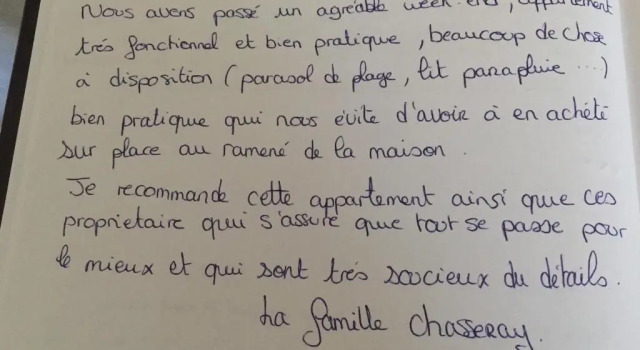 Nous avons passé un agréable week-end, appartement
très fonctionnel et bien pratique, beaucoup de chose
à disposition (parasol de plage, lit parapluie ...)
bien pratique qui nous évite d'avoir à en acheté
sur place au ramené de la maison.
Je recommande cette appartement ainsi que ces
proprietaire qui s'assure que tout se passe pour
le mieux et qui sont très soucieux du détails.
La famille Chasseray.